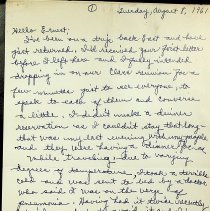 ①
Tuesday, August 8, 1961
Hello Ernest,
I've been on a trip, back East and have
just returned. I'd received your first letter
before I left here and I fully intended
dropping in on our Class reunion for a
few minutes just to see everyone, to
speak to each of them and converse
a little. I didn't make a dinner
reservation as I couldn't stay that long
that was my last evening with my people
and they were having a dinner for us.
While traveling, due to varying
degrees of temperature, I took a terrible
cold and was sent to bed by a doctor
who said it was on the verge of
pneumonia. Having had it twice recently